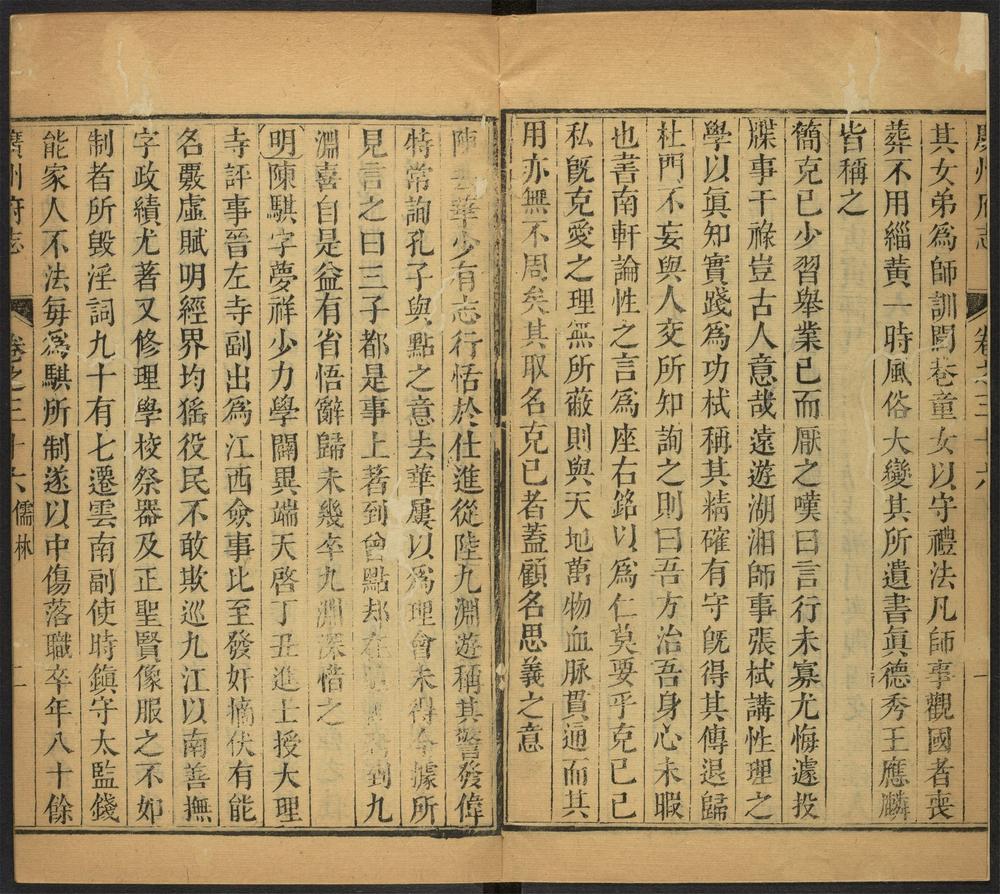 廣州府志 卷之三十六 一
其女弟爲師訓閭巷童女以守禮法凡師事觀國者喪
葬不用緇黃一時風俗大變其所遺書眞德秀王應麟
皆稱之
簡克己少習舉業已而厭之嘆曰言行未寡尤悔遽投
牒事干祿豈古人意哉遠遊湖湘師事張栻講性理之
學以眞知實踐爲功栻稱其精確有守旣得其傳退歸
杜門不妄與人交所知詢之則曰吾方治吾身心未暇
也書南軒論性之言爲座右銘以爲仁莫要乎克己己
私旣克愛之理無所蔽則與天地萬物血脉貫通而其
用亦無不周矣其取名克已者蓋顧名思義之意
陳去華少有志行恬於仕進從陸九淵遊稱其警發偉
特常詢孔子與點之意去華屢以爲理會未得今據所
見言之曰三子都是事上著到曾點却在 到九
淵喜自是益有省悟辭歸未幾卒九淵深惜之
明陳騏字夢祥少力學闢異端天啓丁丑進士授大理
寺評事晉左寺副出爲江西僉事比至發奸摘伏有能
名覈虛賦明經界均猺役民不敢欺巡九江以南善撫
字政績尤著又修理學校祭器及正聖賢像服之不如
制者所毀淫詞九十有七遷雲南副使時鎮守太監錢
能家人不法每爲騏所制遂以中傷落職卒年八十餘
廣州府志 卷之三十六 儒林 二